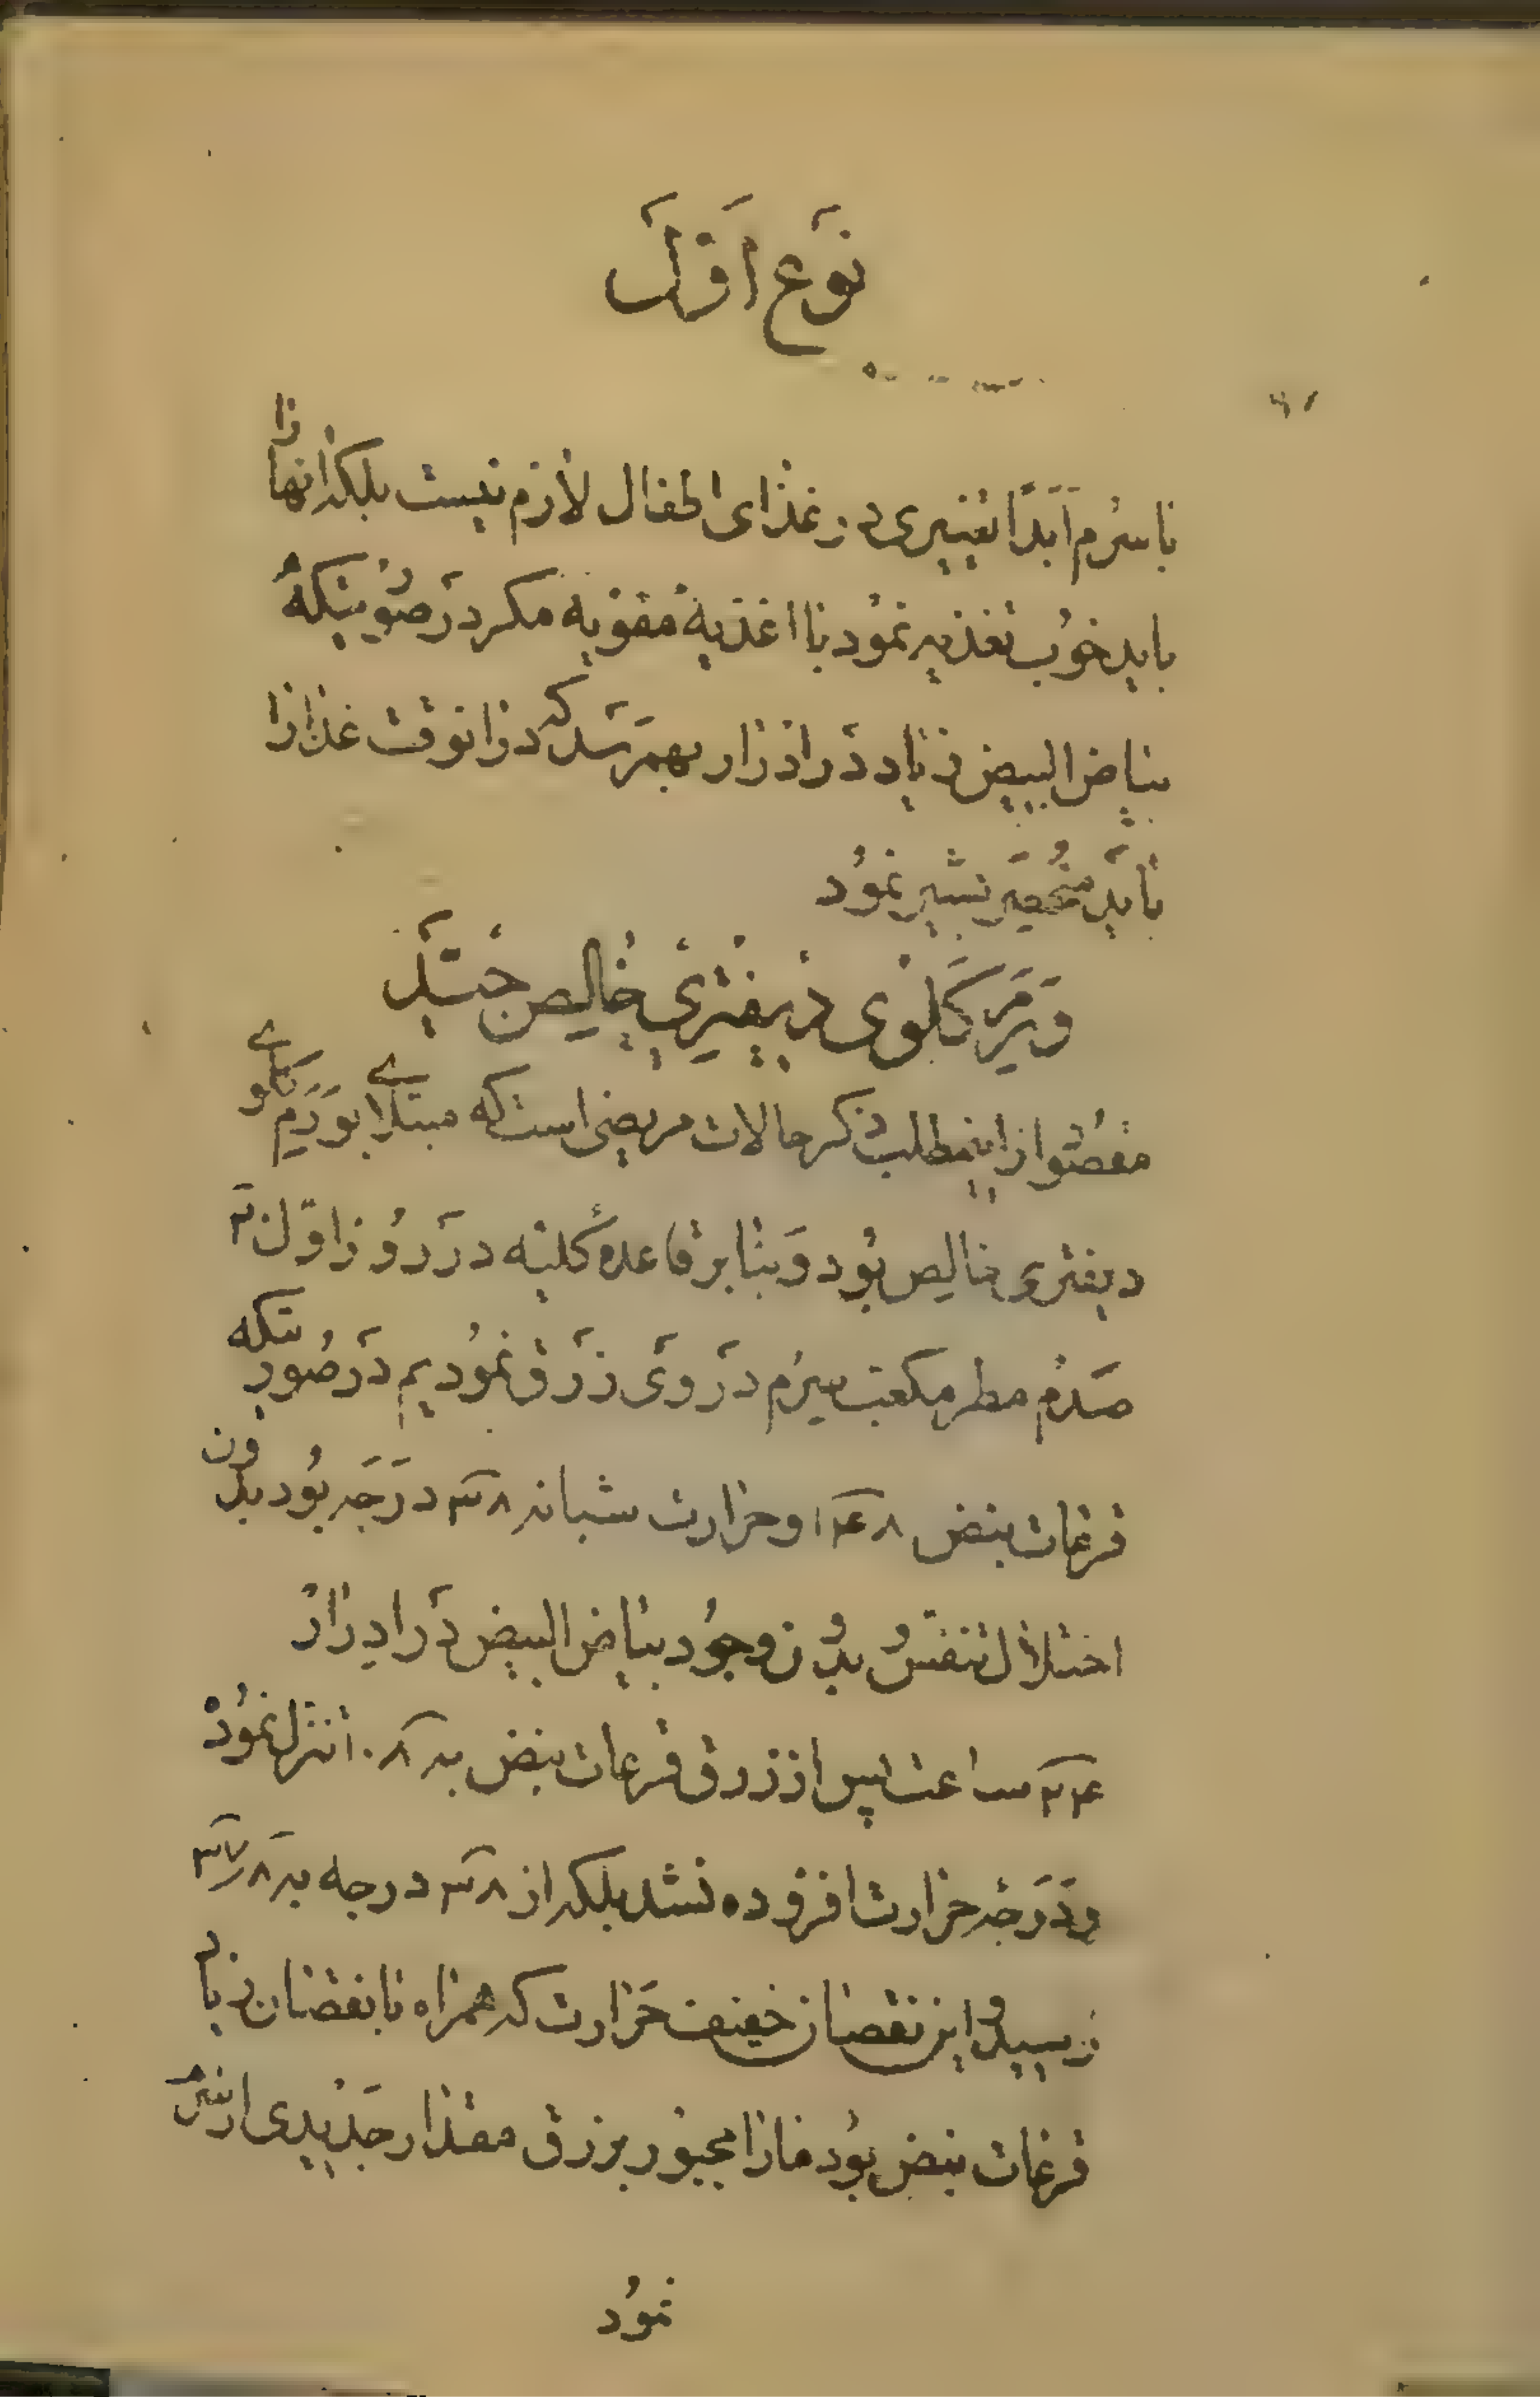 نوع اول
۶۱
با سرم ابداً تغییری در غذای اطفال لازم نیست بلکه انها را
باید خوب تغذیه نمود با اغذیهٔ مقویه مکر در صورتیکه
بیاض البیض زیاد در ادرار بهمرسد که در انوقت غذا را
باید منحصر بشیر نمود
ورم کلوی دیفتری خالص
مقصود از اینمطلب ذکر حالات مریضی است که مبتلا بورم کلوی
دیفتری خالص بود و بنا بر قاعدهٔ کلیه در روز اول ۲۰
صدم مطر مکعب سیرم در وی زرق نمودیم در صورتیکه
قرعات نبض ۱۴۸ و حرارت شبانه ۳۸ درجه بود بدون
اختلال تنفس و بدون وجود بیاض البیض در ادرار
۲۴ ساعت پس از زرق قرعات نبض به ۱۰۸ تنزل نمود
و درجه حرارت افزوده نشد بلکه از ۳۸ درجه به ۳۷٫۸
رسید و این نقصان خفیف حرارت که همراه با نقصان زیاد
قرعات نبض بود ما را مجبور بزرق مقدار جدیدی از سرم
نمود